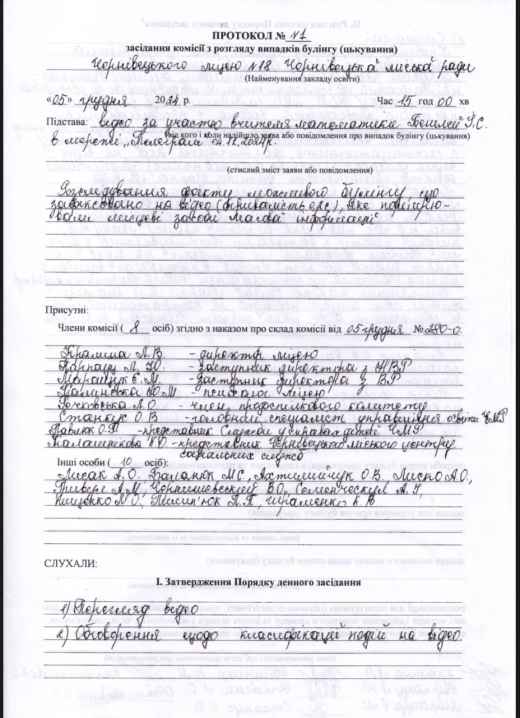 ПРОТОКОЛ № №1
засідання комісії з розгляду випадків булінгу (цькування)
Чернівецького ліцею №18 Чернівецької міської ради
(Найменування закладу освіти)
«05» грудня 2024 р. Час 15 год 00 хв
Підстава: відео за участю вчителя математики С.
(від кого і коли надійшла заява або повідомлення про випадок булінгу (цькування)
в мережі „Телеграм 04.12.2024р.
(стислий зміст заяви або повідомлення)
Розслідування факту можливого булінгу, що
зафіксовано на відео (тривалість сек), яке поширю-
вали місцеві засоби масової інформації
Присутні:
Члени комісії ( 8 осіб) згідно з наказом про склад комісії від 05 грудня №280-о:
А.В. - директор ліцею
Ю. - заступник директора з НВР
Є.М. - заступник директора з ВР
Ю.М - психолог ліцею
Л.О - член профспілкового комітету
О.В - головний спеціаліст управління освіти ЧМР
Павлюк О.Я -представник Служби у справах дітей ЧМР
Калашнікова -представник Чернівецького міського центру
соціальних служб
Інші особи ( 10 осіб):
Лисак А.О. М.С, О.В. А.О.,
А.М. В.О., А.І,
Н.О., К.В
СЛУХАЛИ:
І. Затвердження Порядку денного засідання
1) Перегляд відео
2) Обговорення щодо класифікації подій на відео